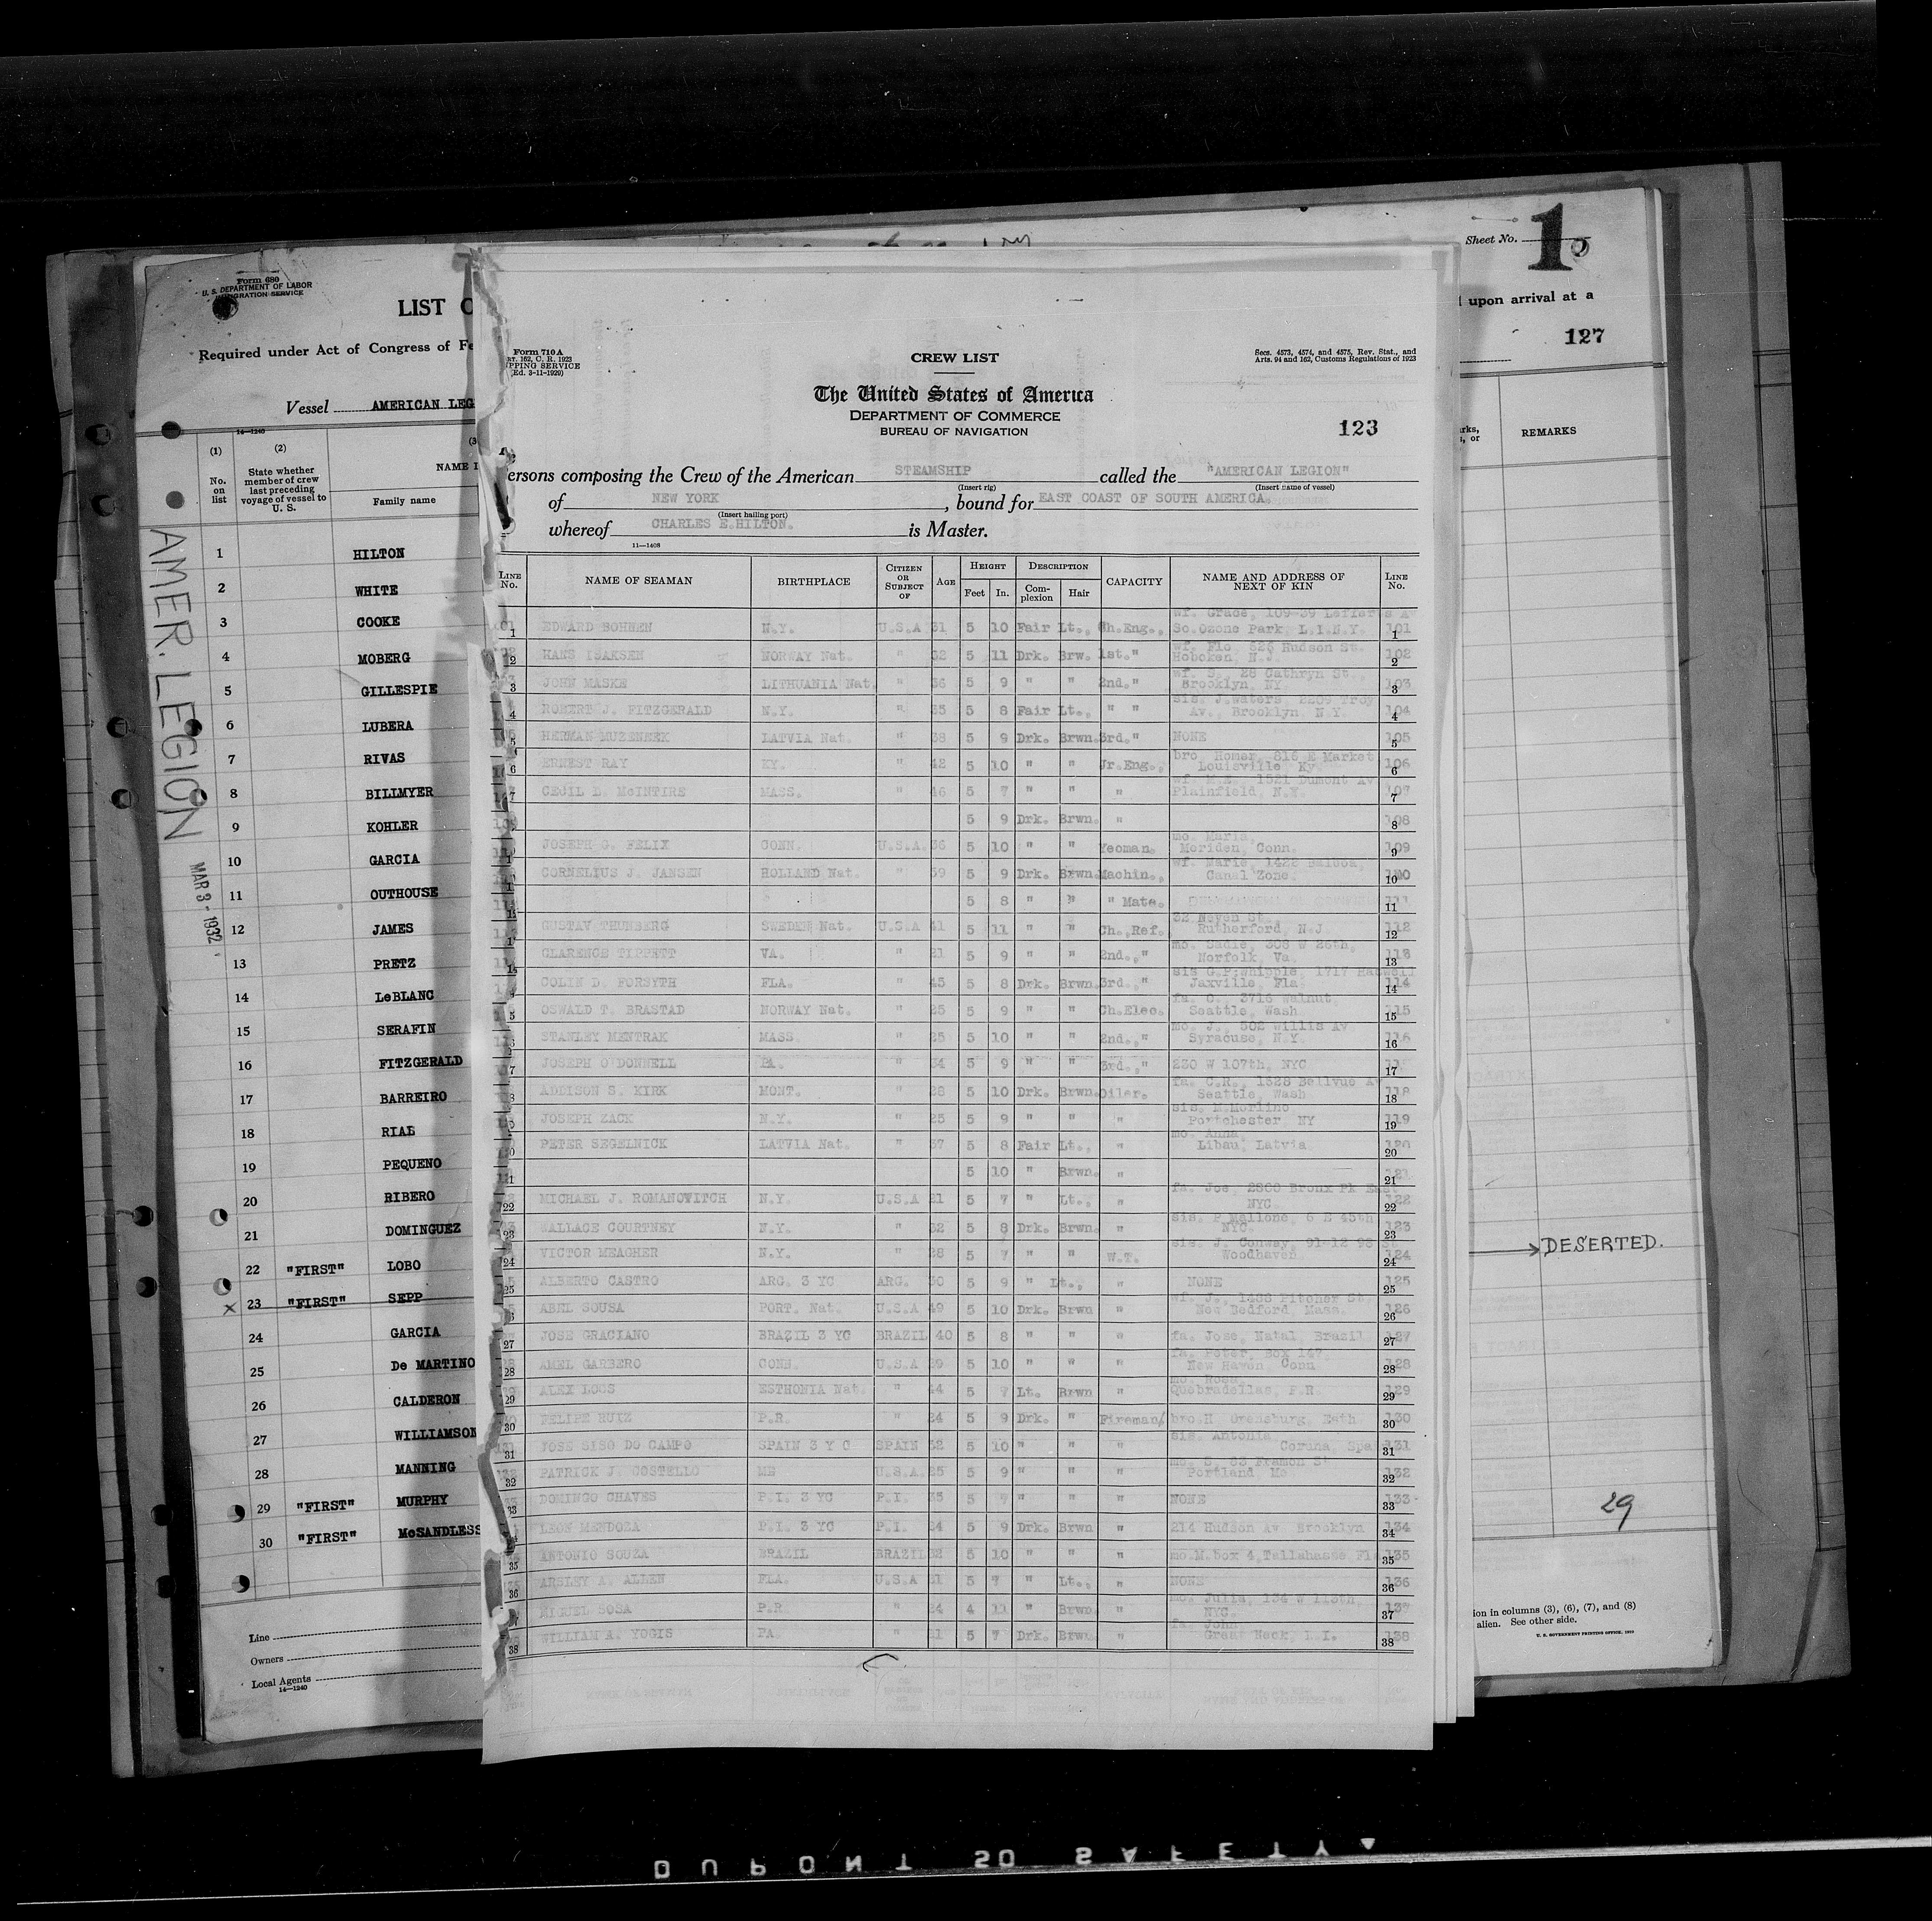 Form 680
U. S. DEPARTMENT OF LABOR
IMMIGRATION SERVICE
LIST
Required under Act of Congress of Fe
Vessel AMERICAN LEG
14—1240
(1) (2) (3
No. on list
State whether member of crew last preceding voyage of vessel to U. S.
NAME I
Family name
1 HILTON
2 WHITE
3 COOKE
4 MOBERG
5 GILLESPIE
6 LUBERA
7 RIVAS
8 BILLMYER
9 KOHLER
10 GARCIA
11 OUTHOUSE
12 JAMES
13 PRETZ
14 LeBLANC
15 SERAFIN
16 FITZGERALD
17 BARREIRO
18 RIAL
19 PEQUENO
20 RIBERO
21 DOMINGUEZ
22 "FIRST" LOBO
x 23 "FIRST" SEPP
24 GARCIA
25 De MARTINO
26 CALDERON
27 WILLIAMSON
28 MANNING
29 "FIRST" MURPHY
30 "FIRST" McSANDLESS
Line
Owners
Local Agents
14—1240
AMER. LEGION
MAR 3 - 1932
Form 710A
ART. 162, C. R. 1923
SHIPPING SERVICE
(Ed. 3-11-1929)
CREW LIST
Secs. 4573, 4574, and 4575, Rev. Stat., and
Arts. 94 and 162, Customs Regulations of 1923
The United States of America
DEPARTMENT OF COMMERCE
BUREAU OF NAVIGATION
123
ersons composing the Crew of the American STEAMSHIP called the "AMERICAN LEGION"
(Insert rig) (Insert name of vessel)
of NEW YORK, bound for EAST COAST OF SOUTH AMERICA.
(Insert hailing port)
whereof CHARLES E.HILTON. is Master.
11—1408
LINE No. NAME OF SEAMAN BIRTHPLACE CITIZEN OR SUBJECT OF AGE HEIGHT Feet In. DESCRIPTION Complexion Hair CAPACITY NAME AND ADDRESS OF NEXT OF KIN LINE No.
1 EDWARD BOHNEN N.Y. U.S.A 31 5 10 Fair Lt., Ch.Eng., wf. Grace, 109-39 Lefferts A So.Ozone Park, L.I.N.Y. 101 1
2 HANS ISAKSEN NORWAY Nat. " 32 5 11 Drk. Brw. 1st." wf. Flo, 626 Hudson St. Hoboken, N.J. 102 2
3 JOHN MASKE LITHUANIA Nat. " 36 5 9 " " 2nd." wf. S., 28 Cathryn St., Brooklyn, NY 103 3
4 ROBERT J. FITZGERALD N.Y. " 35 5 8 Fair Lt., " " sis. J.Waters, 2209 Troy Av., Brooklyn, N.Y. 104 4
5 HERMAN MUZENEEK LATVIA Nat. " 38 5 9 Drk. Brwn. 3rd." NONE 105 5
6 ERNEST RAY KY. " 42 5 10 " " Jr.Eng., bro. Homer, 816 E Market Louisville, Ky. 106 6
7 CECIL D. McINTIRE MASS. " 46 5 7 " " " wf. M.E. 1521 Dumont Av Plainfield, N.Y. 107 7
5 9 Drk. Brwn. " 108 8
JOSEPH G. FELIX CONN. U.S.A. 36 5 10 " " Yeoman. mo. Maria, Meriden, Conn. 109 9
CORNELIUS J. JANSEN HOLLAND Nat. " 39 5 9 Drk. Brwn. Machin., wf. Marie, 1422 Balboa, Canal Zone. 110 10
5 8 " " " Mate. 111 11
GUSTAV THUNBERG SWEDEN Nat. U.S.A 41 5 11 " " Ch.,Ref., 32 Meyen St. Rutherford, N.J. 112 12
CLARENCE TIPPETT VA. " 21 5 9 " " 2nd.," mo. Sadie, 308 W 26th, Norfolk, Va. 113 13
COLIN D. FORSYTH FLA. " 45 5 8 Drk. Brwn. 3rd.," sis G.P.Whipple, 1717 Jaxville, Fla. 114 14
OSWALD T. BRASTAD NORWAY Nat. " 25 5 9 " " Ch.Elec. fa. C., 3716 Walnut, Seattle, Wash 115 15
STANLEY MENTRAK MASS. " 25 5 10 " " 2nd.," mo. J., 502 Willis Av Syracuse, N.Y. 116 16
JOSEPH O'DONNELL PA. " 34 5 9 " " 3rd.," 230 W 107th, NYC 17
ADDISON S. KIRK MONT. " 28 5 10 Drk. Brwn. Oiler. fa. C.R., 1528 Bellvue Av Seattle, Wash 118 18
JOSEPH ZACK N.Y. " 25 5 9 " " " sis. M.Merlino Portchester, NY 119 19
PETER SEGELNICK LATVIA Nat. " 37 5 8 Fair Lt., " mo. Anna, Libau, Latvia 120 20
5 10 " Brwn. " 121 21
22 MICHAEL J. ROMANOVITCH N.Y. U.S.A 21 5 7 " Lt., " fa. Joe, 2860 Bronx Pk East NYC. 122 22
23 WALLACE COURTNEY N.Y. " 32 5 8 Drk. Brwn. " sis. P Mallone, 6 E 45th NYC. 123 23
24 VICTOR MEAGHER N.Y. " 28 5 7 " " W.T. sis. J. Conway, 91-12 98 St Woodhaven 124 24
25 ALBERTO CASTRO ARG. 3 YC ARG. 30 5 9 " Lt., " NONE 125 25
26 ABEL SOUSA PORT. Nat. U.S.A 49 5 10 Drk. Brwn " wf. J., 1468 Pitcher St. New Bedford, Mass. 126 26
27 JOSE GRACIANO BRAZIL 3 YC BRAZIL 40 5 8 " " " fa. Jose, Natal, Brazil 127 27
28 AMEL GARBERO CONN. U.S.A 29 5 10 " " " fa. Peter, Box 147, New Haven, Conn 128 28
29 ALEX LOOS ESTHONIA Nat. " 44 5 7 Lt. Brwn " mo. Rosa, Quebradellas, P.R. 129 29
30 FELIPE RUIZ P.R. " 24 5 9 Drk. " Fireman/ bro.H Orensburg, Esth. 130 30
31 JOSE SISO DO CAMPO SPAIN 3 Y C SPAIN 32 5 10 " " " sis. Antonia Coruna, Spa 131 31
32 PATRICK J. COSTELLO ME U.S.A. 25 5 9 " " " mo. S, 63 Framon St Portland Me 132 32
33 DOMINGO CHAVES P.I. 3 YC P.I. 35 5 7 " " " NONE 133 33
LEON MENDOZA P.I. 3 YC P.I. 24 5 9 Drk. Brwn " 214 Hudson Av Brooklyn 134 34
35 ANTONIO SOUZA BRAZIL BRAZIL 32 5 10 " " " mo.M.Box 4,Tallahasse Fl 135 35
36 ARSLEY A. ALLEN FLA. U.S.A 21 5 7 " Lt., " NONE 136 36
MIGUEL SOSA P.R. " 24 4 11 " Brwn. " mo. Julia, 134 W 113th, NYC. 137 37
38 WILLIAM A. YOGIS PA. " 21 5 7 Drk. Brwn. " fa. John, Great Neck, L.I. 138 38
Sheet No. 1
upon arrival at a
127
rks,
s, or
REMARKS
DESERTED.
29
ion in columns (3), (6), (7), and (8)
alien. See other side.
U. S. GOVERNMENT PRINTING OFFICE
DUPONT 50 SAFETY